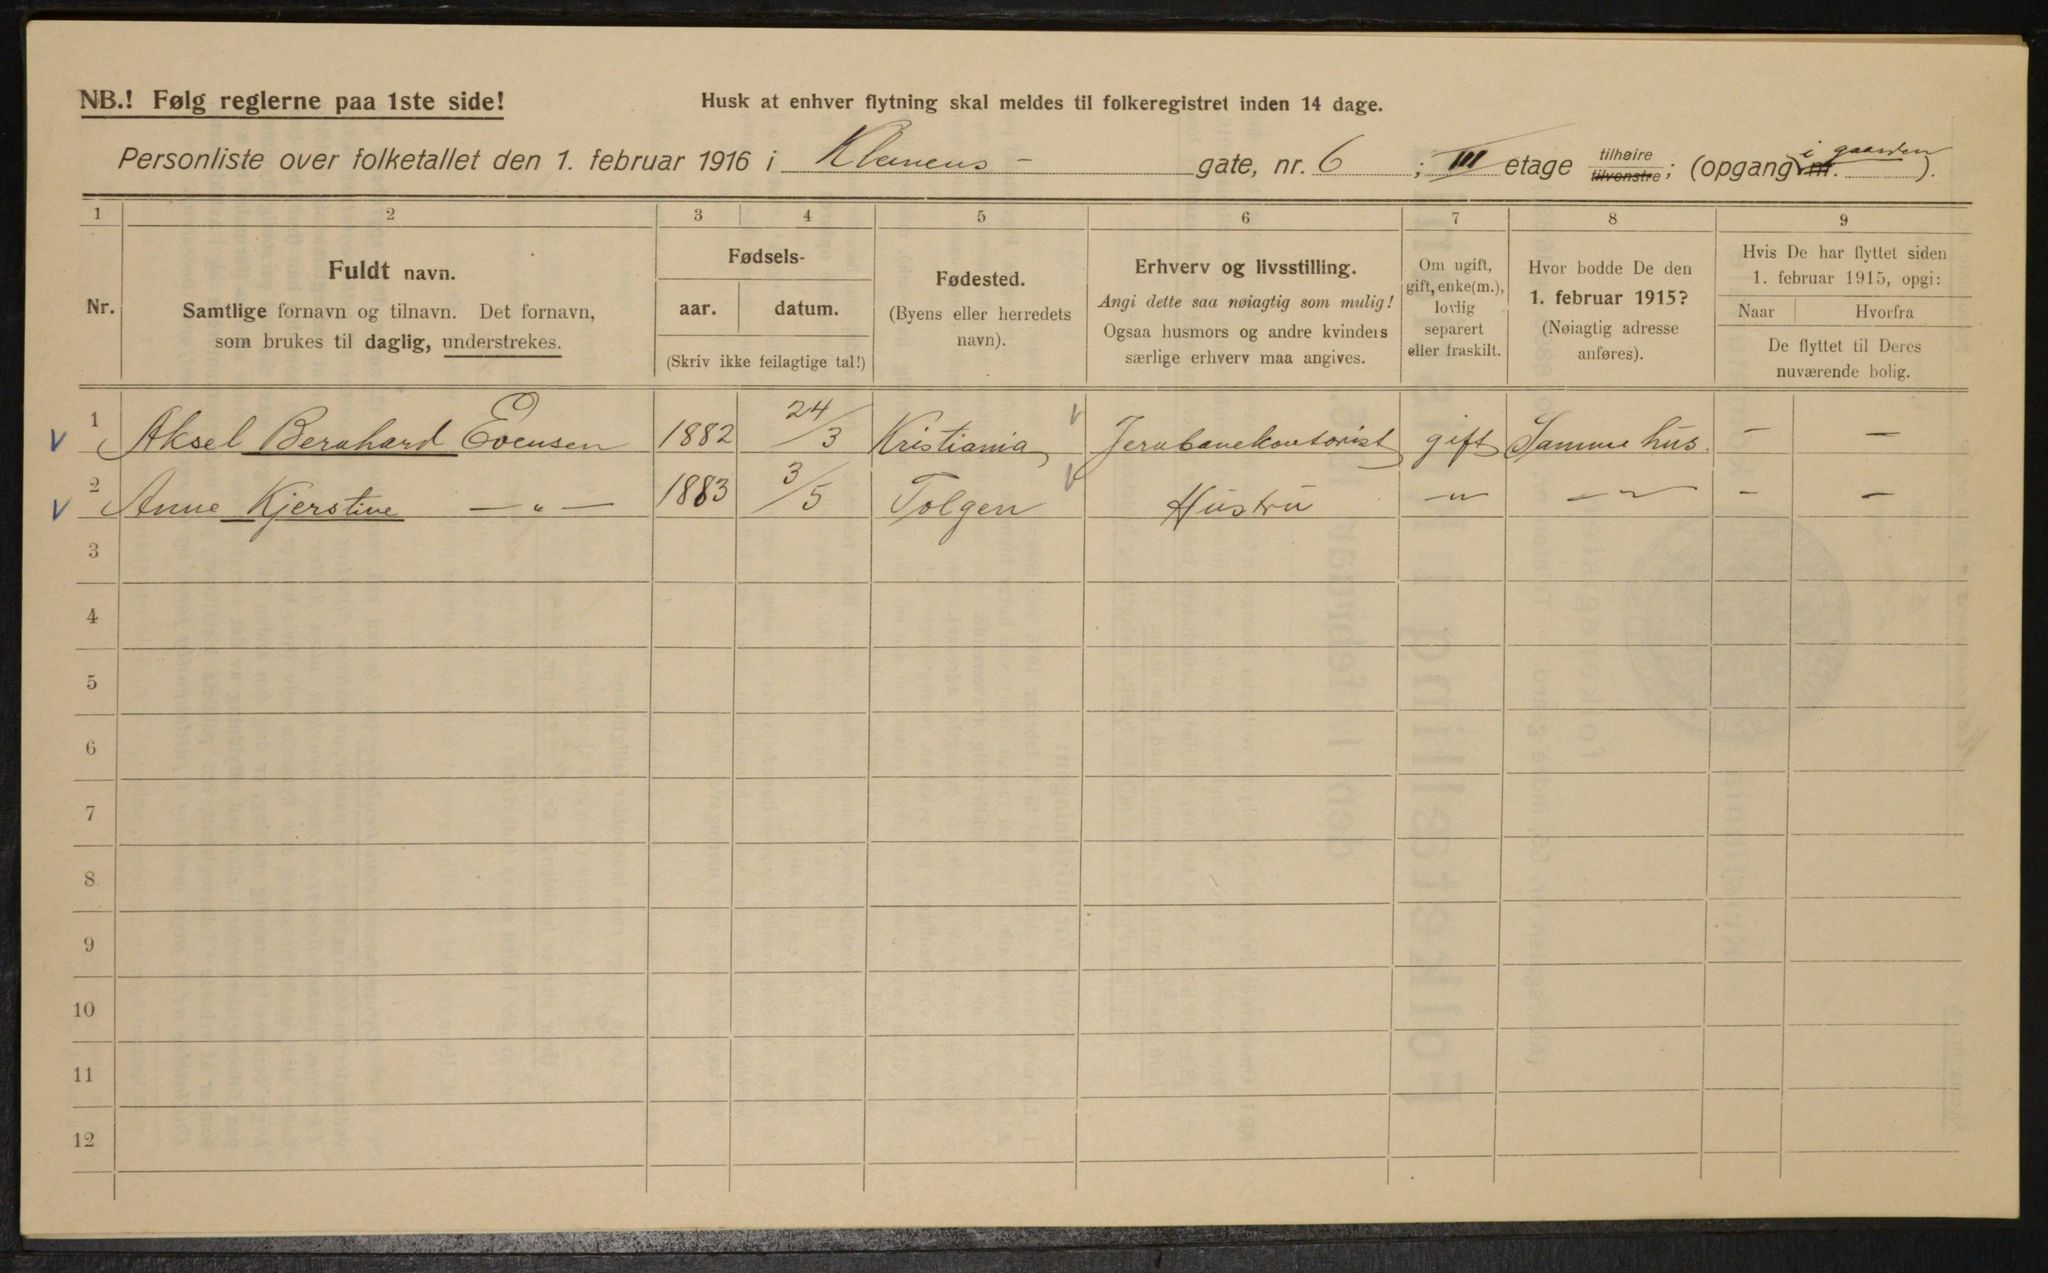 NB.! Følg reglerne paa 1ste side!
Husk at enhver flytning skal meldes til folkeregistret inden 14 dage.
Personliste over folketallet den 1. februar 1916 i Klemens - gate, nr. 6 ; III etage tilhøire tilvenstre; (opgang nr. i gaarden).
1 2 3 4 5 6 7 8 9
Nr.
Fuldt navn.
Samtlige fornavn og tilnavn. Det fornavn,
som brukes til daglig, understrekes.
Fødsels-
aar. datum.
(Skriv ikke feilagtige tal!)
Fødested.
(Byens eller herredets
navn).
Erhverv og livsstilling.
Angi dette saa nøiagtig som mulig!
Ogsaa husmors og andre kvinders
særlige erhverv maa angives.
Om ugift,
gift, enke(m.),
lovlig
separert
eller fraskilt.
Hvor bodde De den
1. februar 1915?
(Nøiagtig adresse
anføres).
Hvis De har flyttet siden
1. februar 1915, opgi:
Naar Hvorfra
De flyttet til Deres
nuværende bolig.
1 Aksel Bernhard Evensen 1882 24/3 Kristiania Jernbanekontorist gift Samme hus. — —
2 Anne Kjerstine — „ — 1883 3/5 Tolgen Hustru —„— —„— — —
3
4
5
6
7
8
9
10
11
12